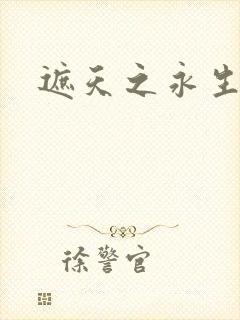 遮天之永生
徐警官